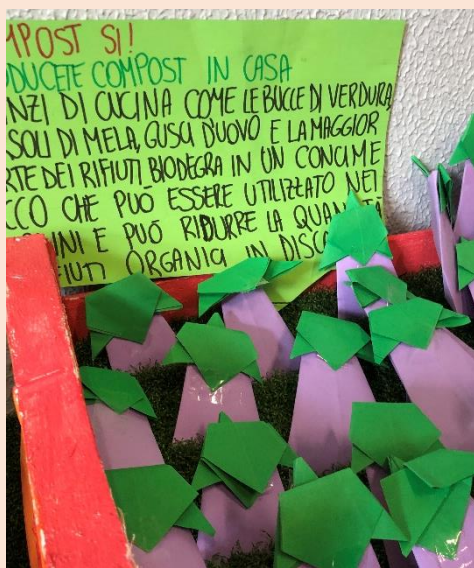 MPOST SI!
ODUCETE COMPOST IN CASA
NZI DI CUCINA COME LE BUCCE DI VERDURA,
SOLI DI MELA, GUSCI D'UOVO E LA MAGGIOR
RTE DEI RIFIUTI BIODEGRA IN UN CONCIME
CCO CHE PUÒ ESSERE UTILIZZATO NEI
INI E PUÒ RIDURRE LA QUANTITÀ
FIUTI ORGANICI IN DISCO